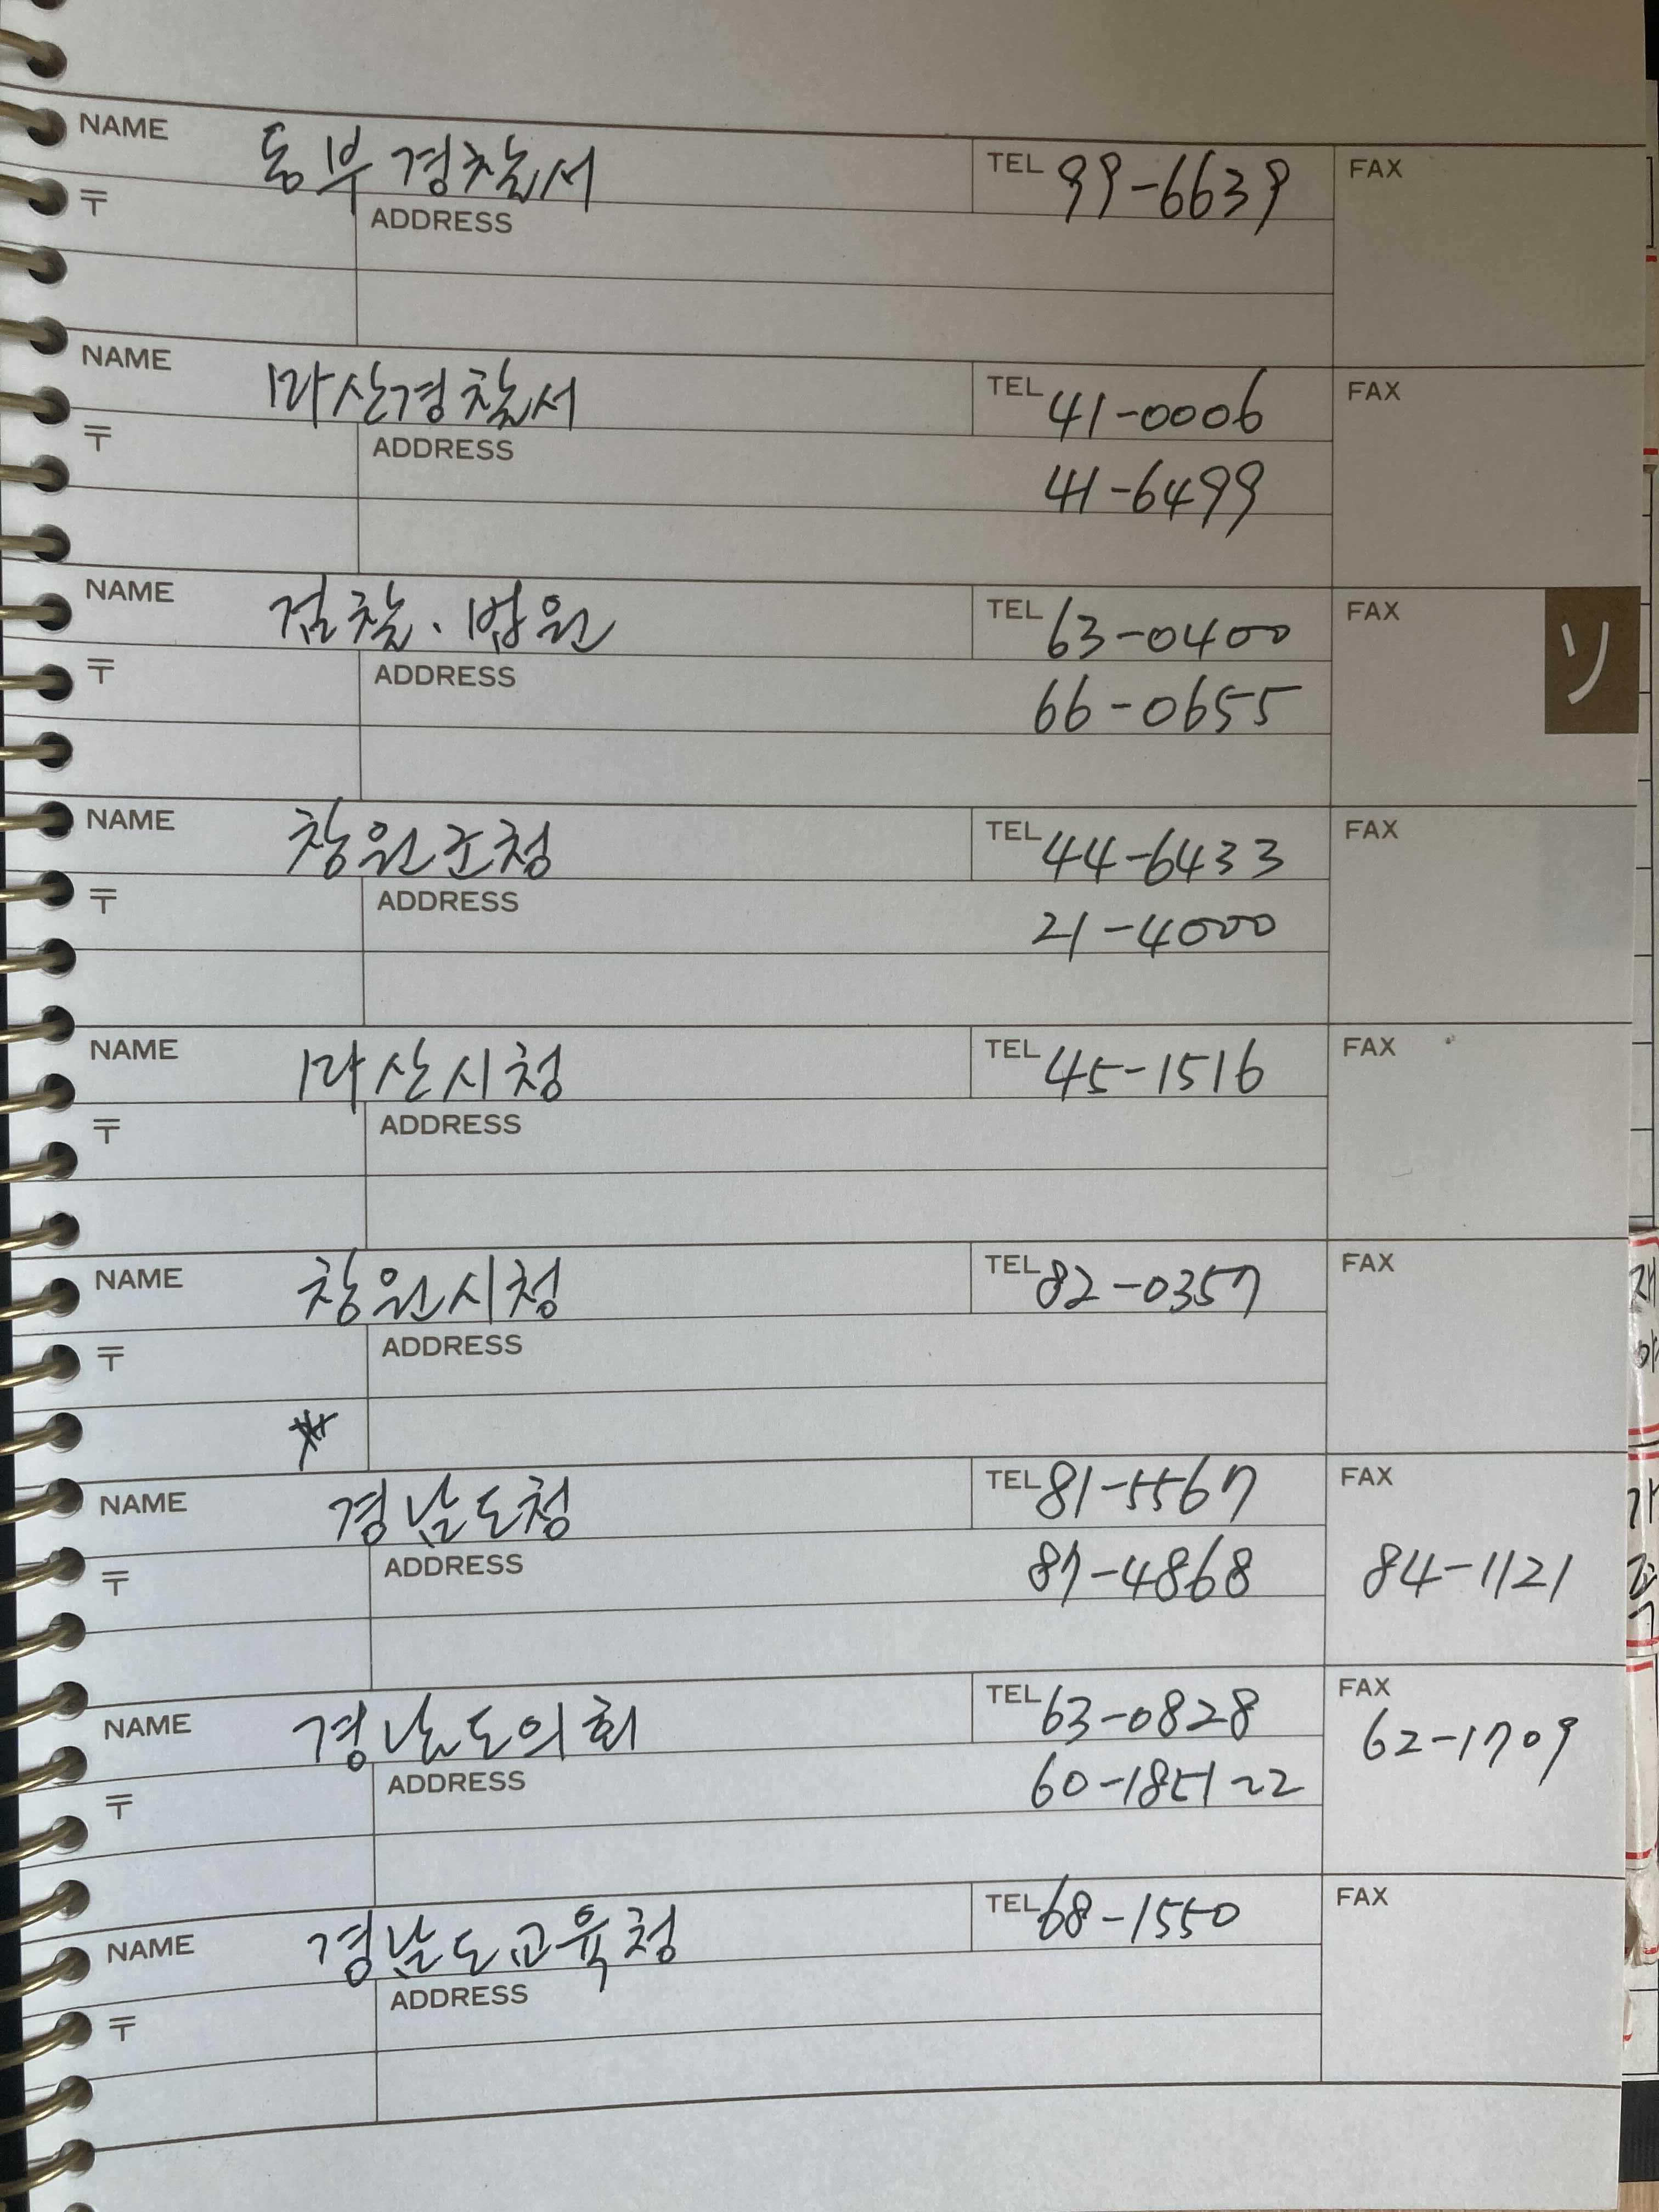 NAME 동부경찰서 TEL 99-6639 FAX
〒 ADDRESS
NAME 마산경찰서 TEL 41-0006 FAX
〒 ADDRESS 41-6499
NAME 검찰.법원 TEL 63-0400 FAX ソ
〒 ADDRESS 66-0655
NAME 창원군청 TEL 44-6433 FAX
〒 ADDRESS 21-4000
NAME 마산시청 TEL 45-1516 FAX
〒 ADDRESS
NAME 창원시청 TEL 82-0357 FAX
〒 ADDRESS
NAME 경남도청 TEL 81-5567 FAX
〒 ADDRESS 87-4868 84-1121
NAME 경남도의회 TEL 63-0828 FAX 62-1709
〒 ADDRESS
NAME 경남도교육청 TEL 68-1550 FAX
〒 ADDRESS